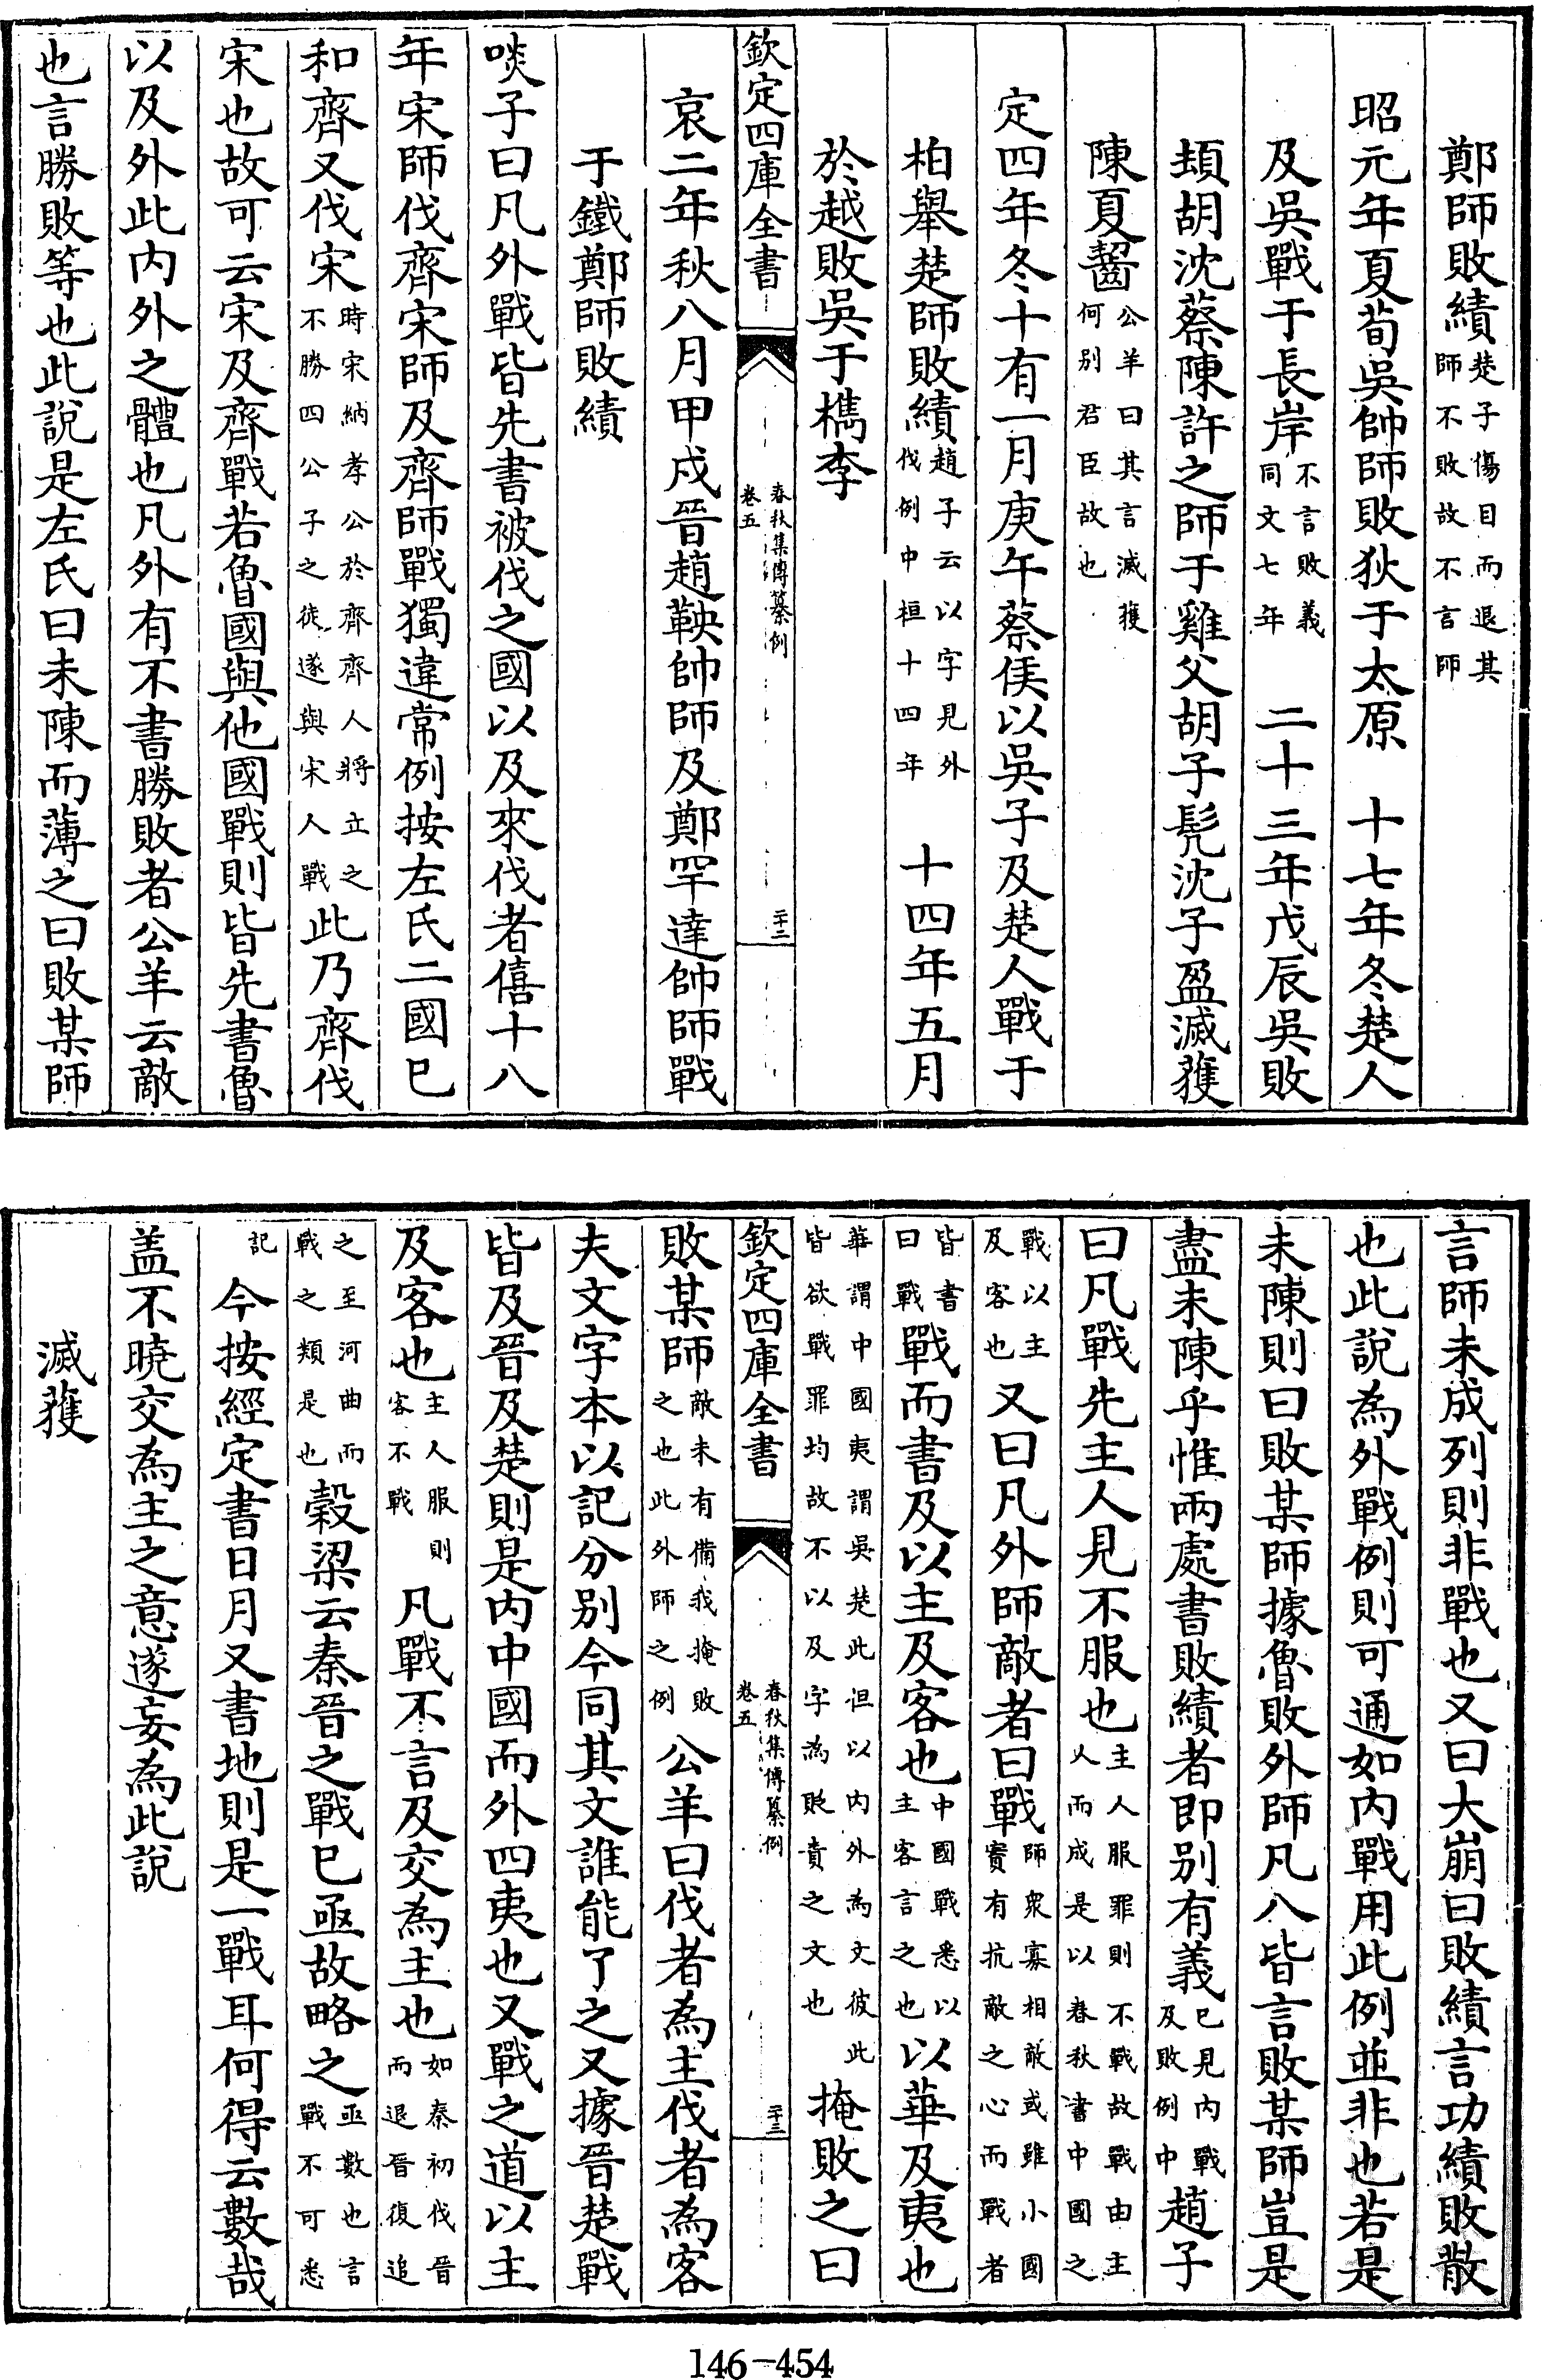 鄭師敗績楚子傷目而退其師不敗故不言師
昭元年夏荀吳帥師敗狄于太原　十七年冬楚人
及吳戰于長岸不言敗義同文七年　二十三年戊辰吳敗
頓胡沈蔡陳許之師于雞父胡子髡沈子盈滅獲
陳夏齧公羊曰其言滅獲何别君臣故也
定四年冬十有一月庚午蔡侯以吳子及楚人戰于
柏舉楚師敗績趙子云以字見外伐例中桓十四年　十四年五月
於越敗吳于檇李
欽定四庫全書
春秋集傳纂例
卷五
二十二
哀二年秋八月甲戌晉趙鞅帥師及鄭罕達帥師戰
于鐵鄭師敗績
啖子曰凡外戰皆先書被伐之國以及來伐者僖十八
年宋師伐齊宋師及齊師戰獨違常例按左氏二國已
和齊又伐宋時宋納孝公於齊齊人將立之不勝四公子之徒遂與宋人戰此乃齊伐
宋也故可云宋及齊戰若魯國與他國戰則皆先書魯
以及外此内外之體也凡外有不書勝敗者公羊云敵
也言勝敗等也此說是左氏曰未陳而薄之曰敗某師
言師未成列則非戰也又曰大崩曰敗績言功績敗散
也此說為外戰例則可通如内戰用此例並非也若是
未陳則曰敗某師據魯敗外師凡八皆言敗某師豈是
盡未陳乎惟兩處書敗績者即别有義已見内戰及敗例中趙子
曰凡戰先主人見不服也主人服罪則不戰故戰由主人而成是以春秋書中國之
戰以主及客也又曰凡外師敵者曰戰師衆寡相敵或雖小國實有抗敵之心而戰者
皆書曰戰戰而書及以主及客也中國戰悉以主客言之也以華及夷也
華謂中國夷謂吳楚此但以内外為文彼此皆欲戰罪均故不以及字為貶責之文也掩敗之曰
欽定四庫全書
春秋集傳纂例
卷五
二十三
敗某師敵未有備我掩敗之也此外師之例公羊曰伐者為主伐者為客
夫文字本以記分别今同其文誰能了之又據晉楚戰
皆及晉及楚則是内中國而外四夷也又戰之道以主
及客也主人服則客不戰　凡戰不言及交為主也如秦初伐晉而退晉復追
之至河曲而戰之類是也穀梁云秦晉之戰已亟故略之亟數也言戰不可悉
記　今按經定書日月又書地則是一戰耳何得云數哉
盖不曉交為主之意遂妄為此說
滅獲
146-454